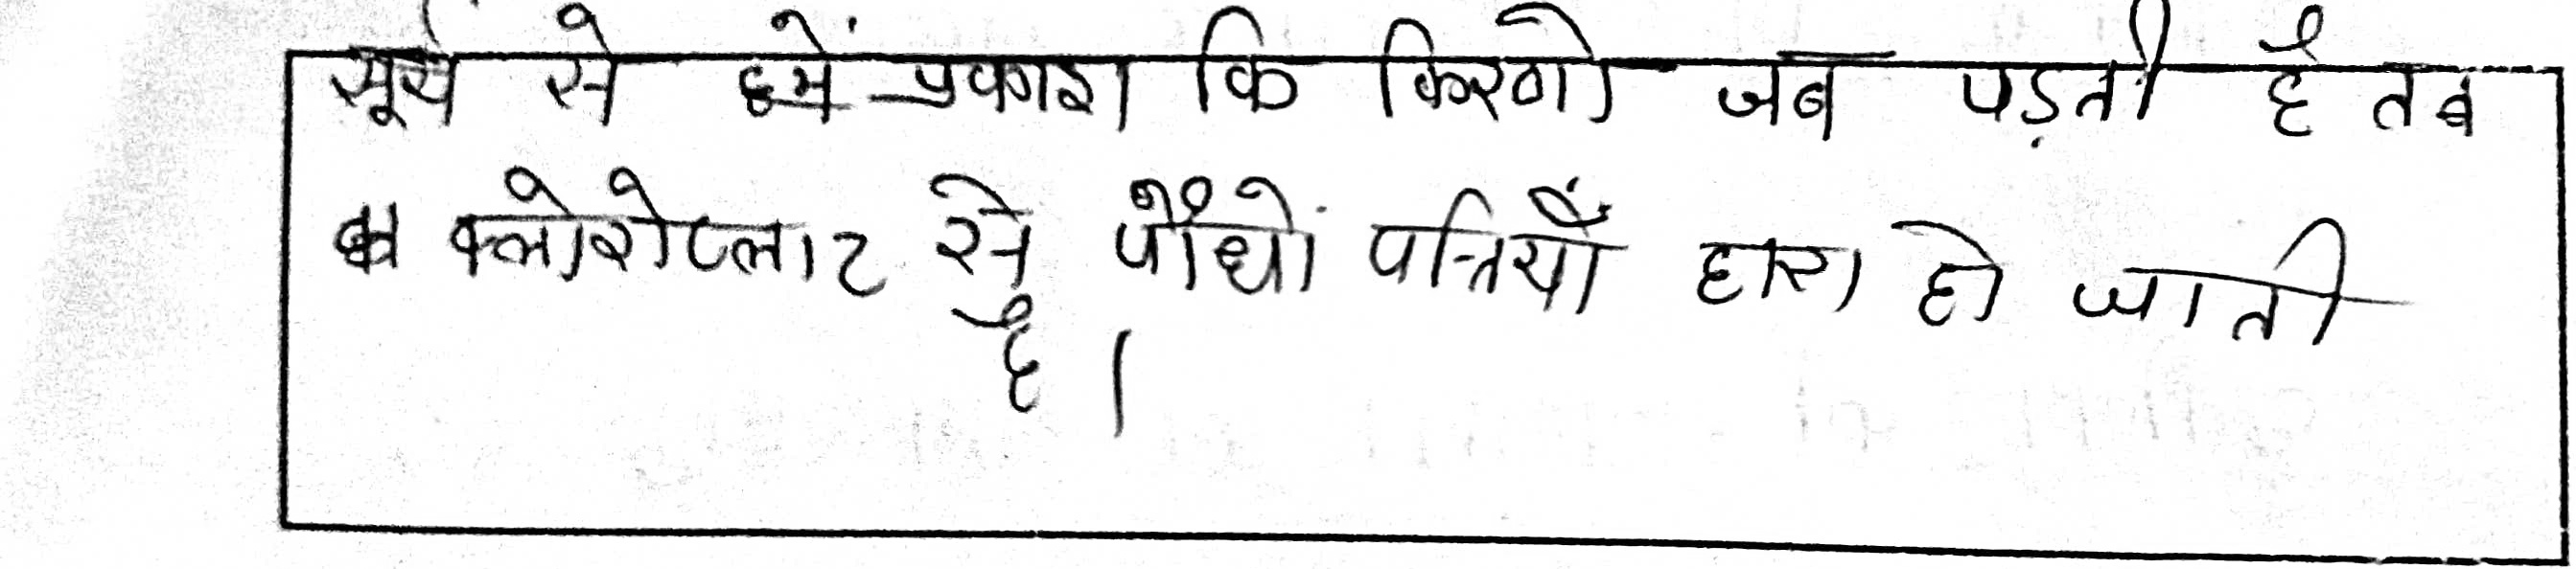 सूर्य से हमें प्रकाश कि किरणो जब पड़ती है तब
क्लोरोप्लाट से पौधों पत्तियाँ द्वारा हो जाती
है।